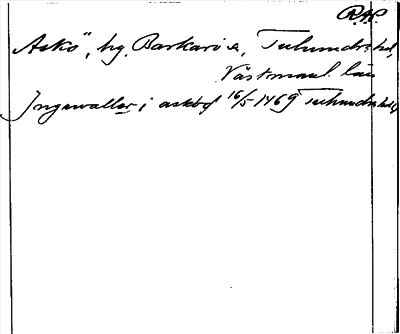 RAP
Askö, by, Barkarö s, Tuhundra hd,
Västmanl. län
Ingewaller i askö 16/5 1469 Tuhundra hd